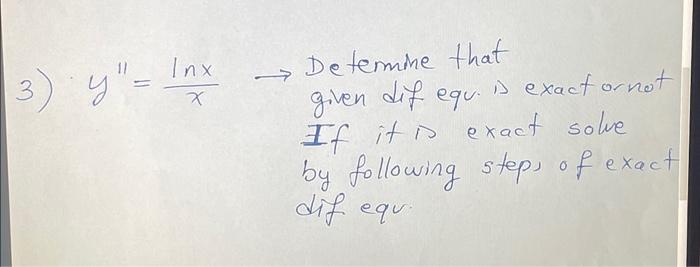 3) y'' = lnx/x → Determine that
given dif equ. is exact or not
If it is exact solve
by following steps of exact
dif equ.